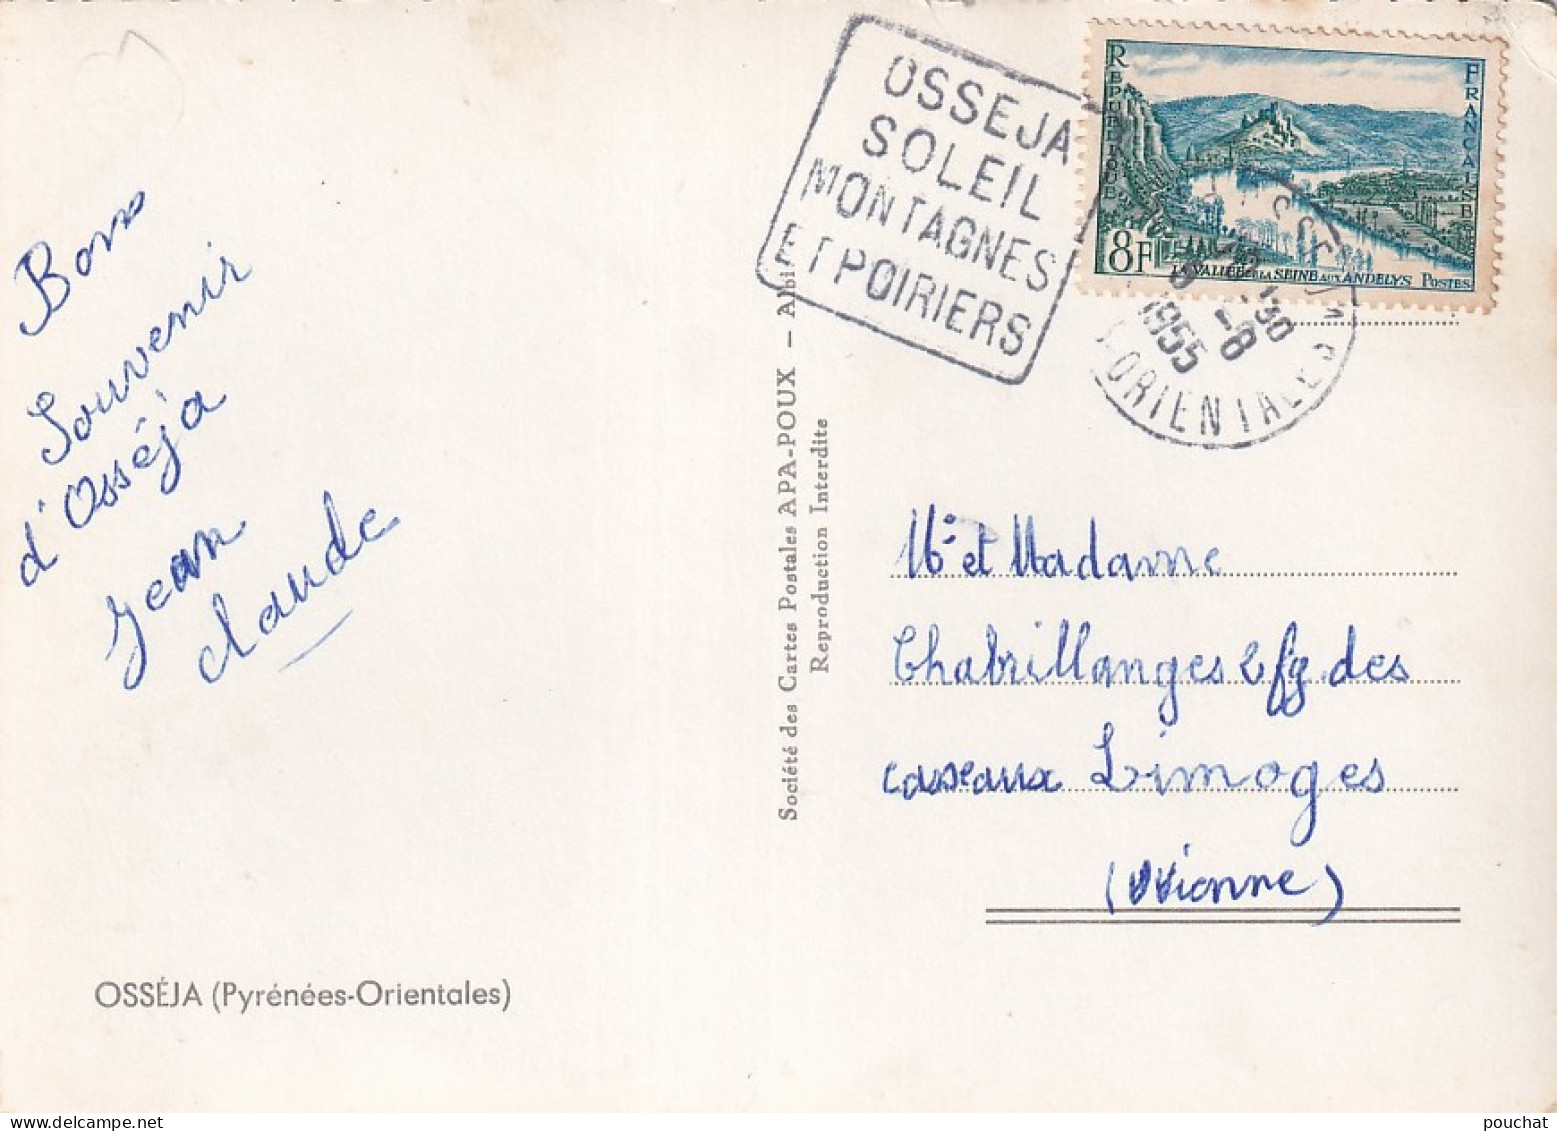 OSSEJA
SOLEIL
MONTAGNES
ET POIRIERS
RÉPUBLIQUE
FRANÇAISE
8F
LA VALLÉE DE LA SEINE AUX ANDELYS POSTES
1955
-8
ORIENTALES
Bons
Souvenir
d'Osséja
Jean
claude
Société des Cartes Postales APA-POUX - Albi
Reproduction Interdite
Mr et Madame
Chabrillanges 2 fg des
caseaux Limoges
(Vienne)
OSSÉJA (Pyrénées-Orientales)
pouchat